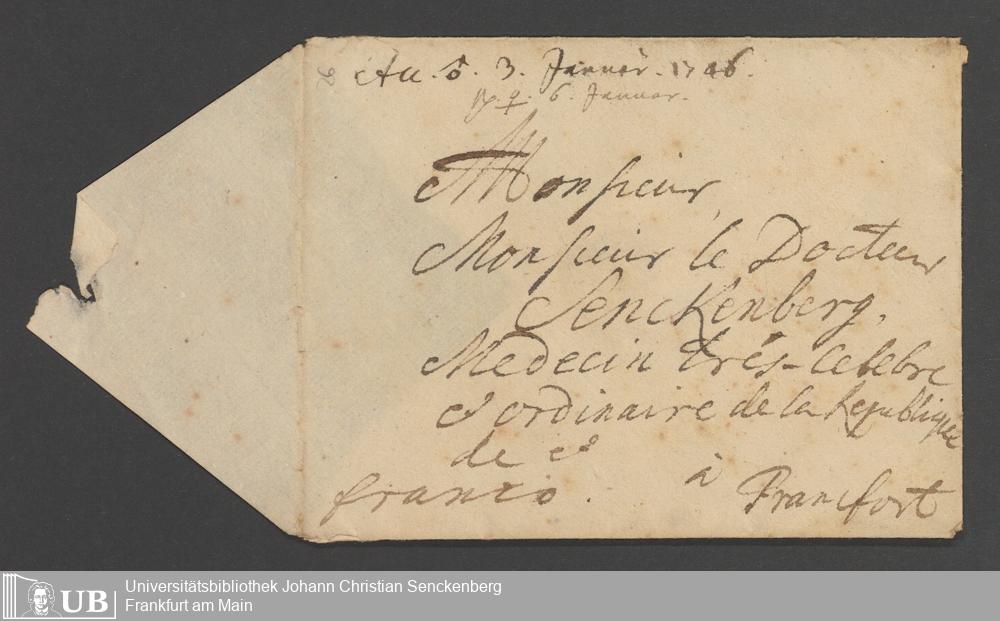 Acc. ♂. 3. Januar. 1746.
♀. 6. Januar.
Monsieur,
Monsieur le Docteur
Senckenberg,
Medecin trés-celebre
& ordinaire de la Republique
de &
franco. à Francfort
UB
Universitätsbibliothek Johann Christian Senckenberg
Frankfurt am Main